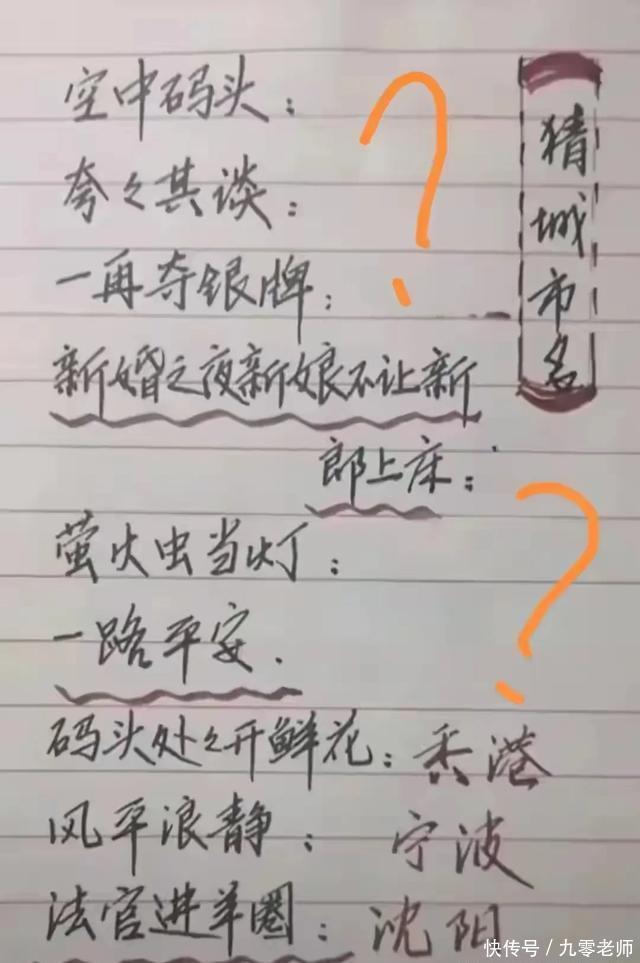 猜城市名
空中码头：
夸々其谈：
一再夺银牌：
新婚之夜新娘不让新
郎上床：
萤火虫当灯：
一路平安．
码头处々开鲜花：香港
风平浪静：宁波
法官进羊圈：沈阳
快传号／九零老师